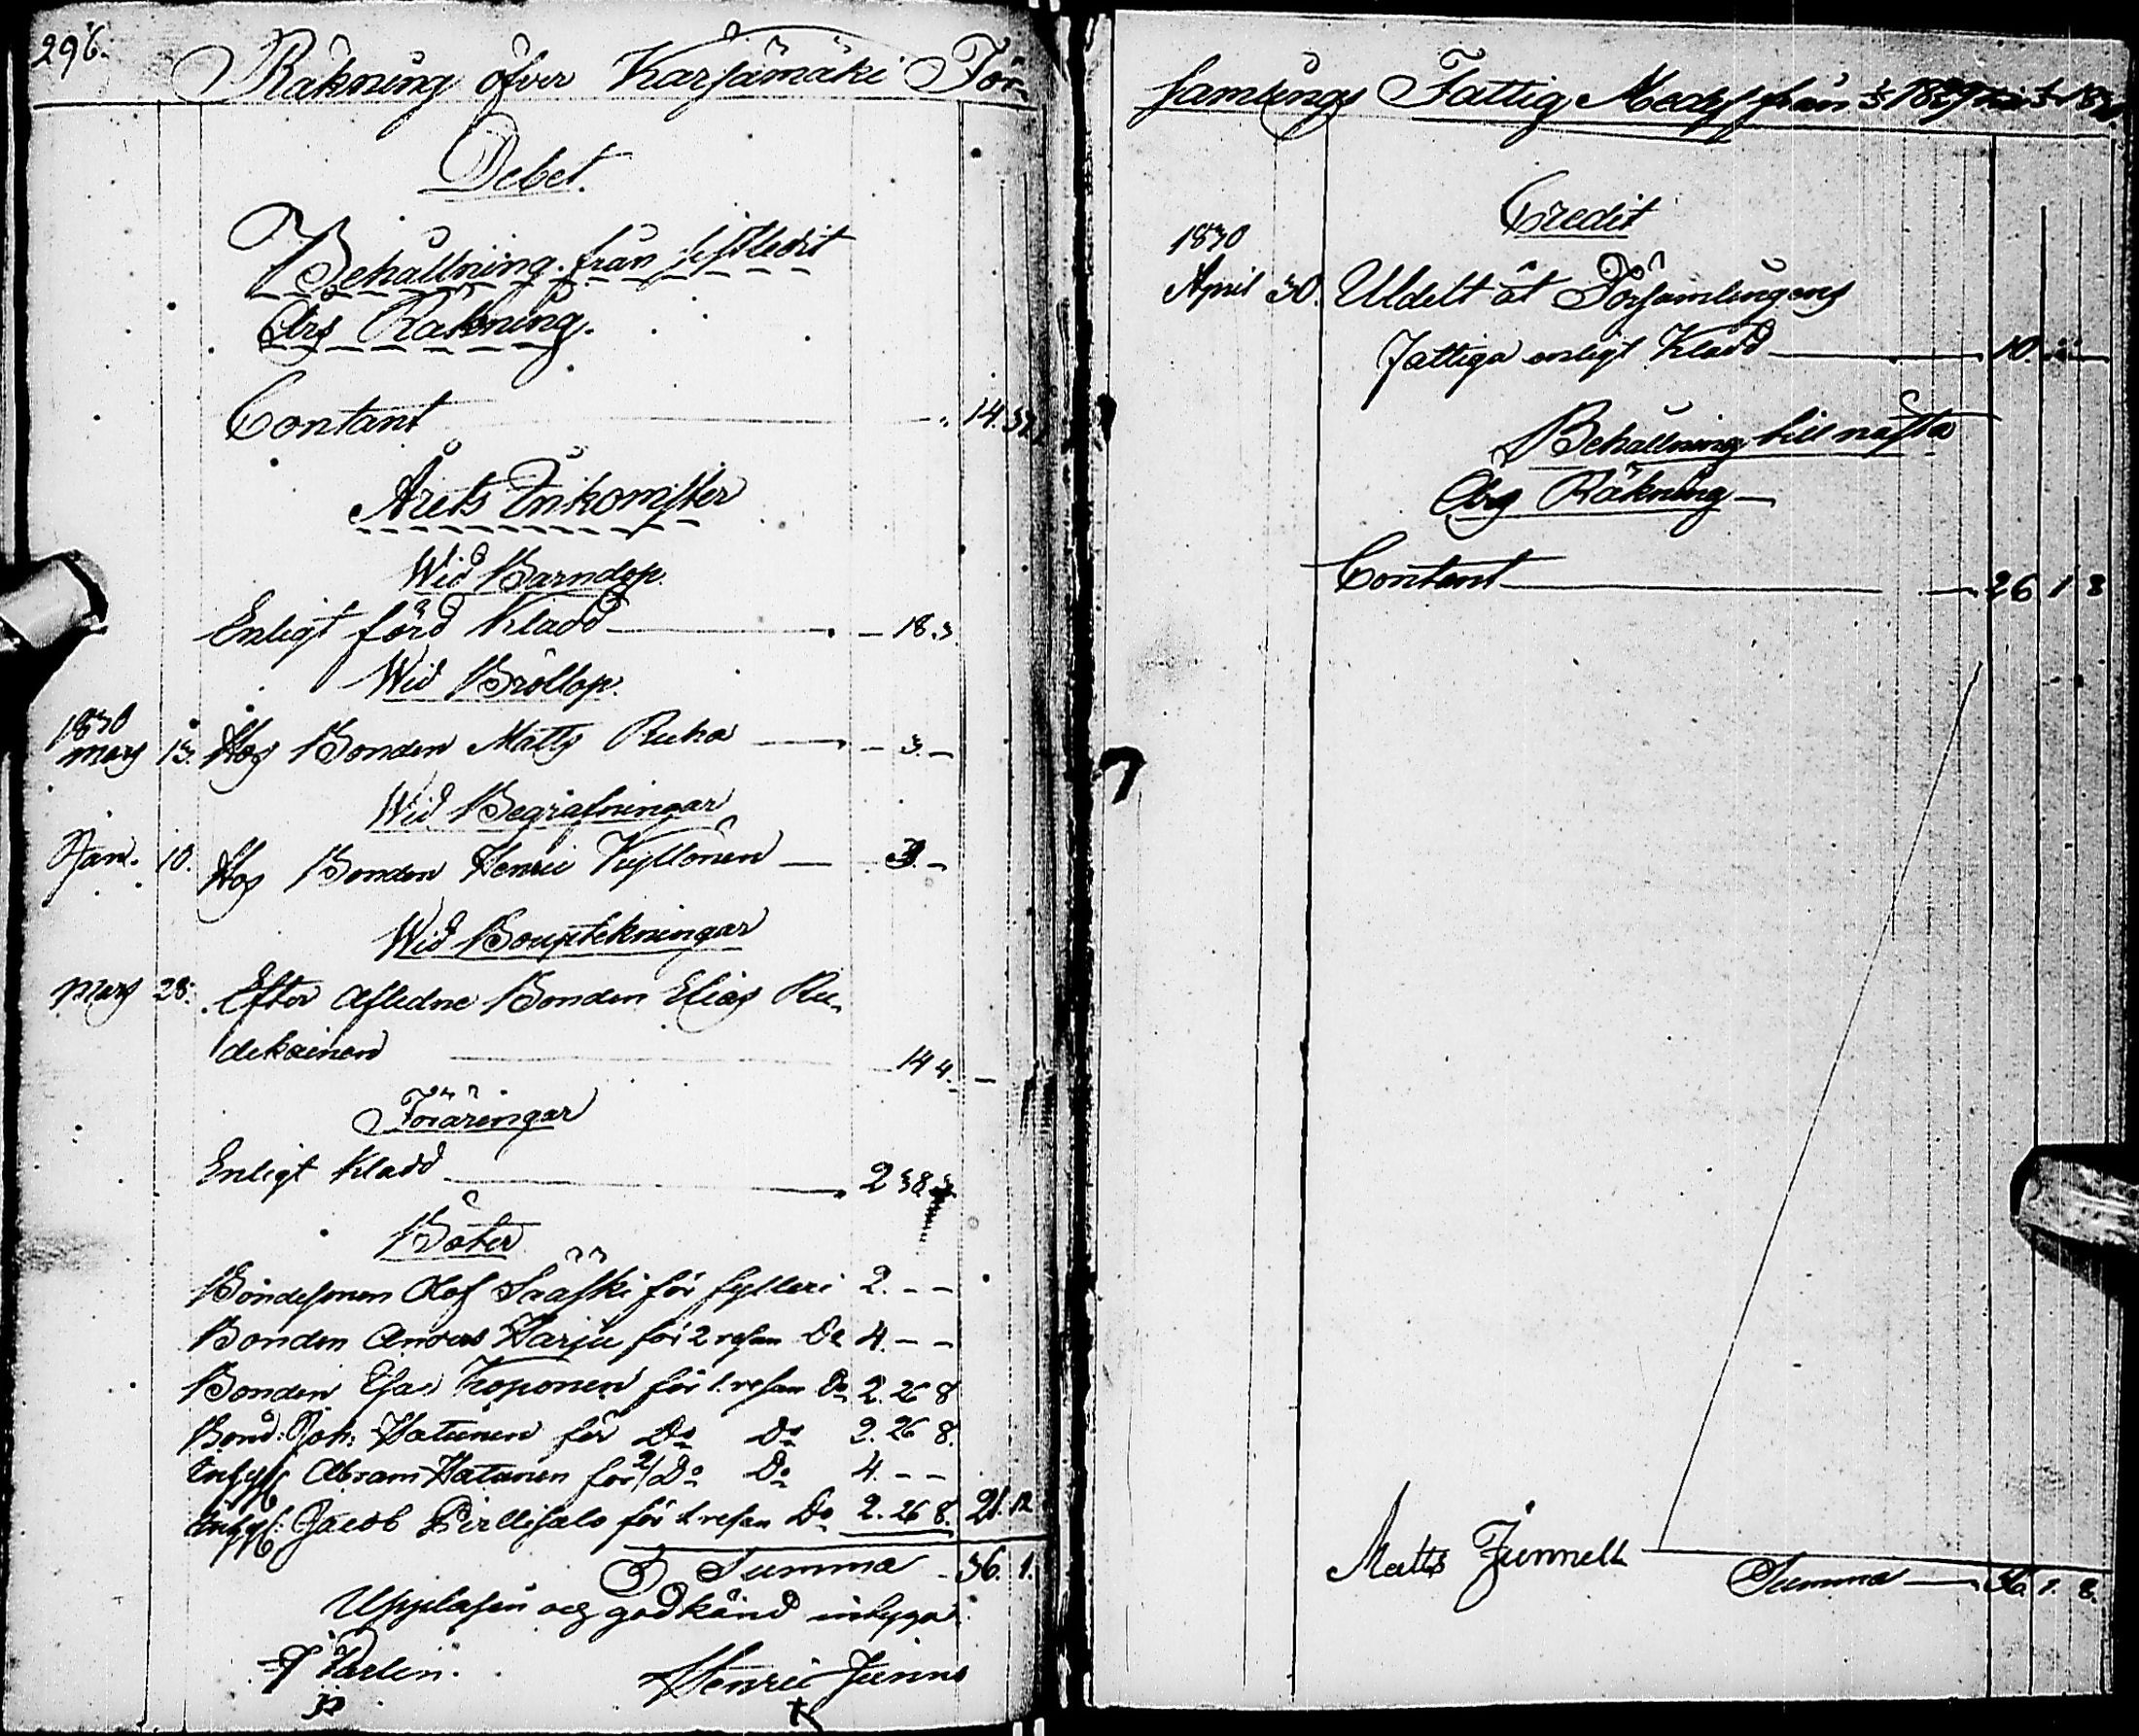 296.
Räkning öfver Kärsämäki För-
Debet.
Behållning från sistledit
Års Räkning.
Contant 14.
Årets Inkomster
Wid Barndop.
Enligt förd Kladd — 18.3
Wid Bröllop.
1830
Mars 13. Hos Bonden Matts Ruha — 3. –
Wid Begrafningar
Jan. 10. Hos Bonden Henric Kyllönen — 3. –
Wid Bouptekningar
Mars 28. Efter Afledne Bonden Elias Ru-
dekainen 14 4. –
Föräringar
Enligt Kladd 2 38
Böter
Bondesonen Olof Sääski för fylleri 2. – –
Bonden Anders Harju för 2 resan Do 4. – –
Bonden Esa Koponen för 1. resan Do 2. 26 8
Bond: Joh: Hatunen för Do Do 2. 26 8.
Inhys: Abram Hatunen för 2 Do Do 4. – –
Inhys: Jacob Pirllisalo för 1 resan Do 2. 26 8. 21. 12
Summa 36. 1.
Upplasen och godkänd intyga:
Henric Junno
samlings Fattig Medel från 1/5 1829 till 1/5 1830.
Credit
1830
April 30. Utdelt åt Församlingens
fattiga enligt Kladd — 10.
Behållning till nästa
Års Räkning —
Contant — 26 1 8
Matts Junnell
Summa — 36. 1. 8.